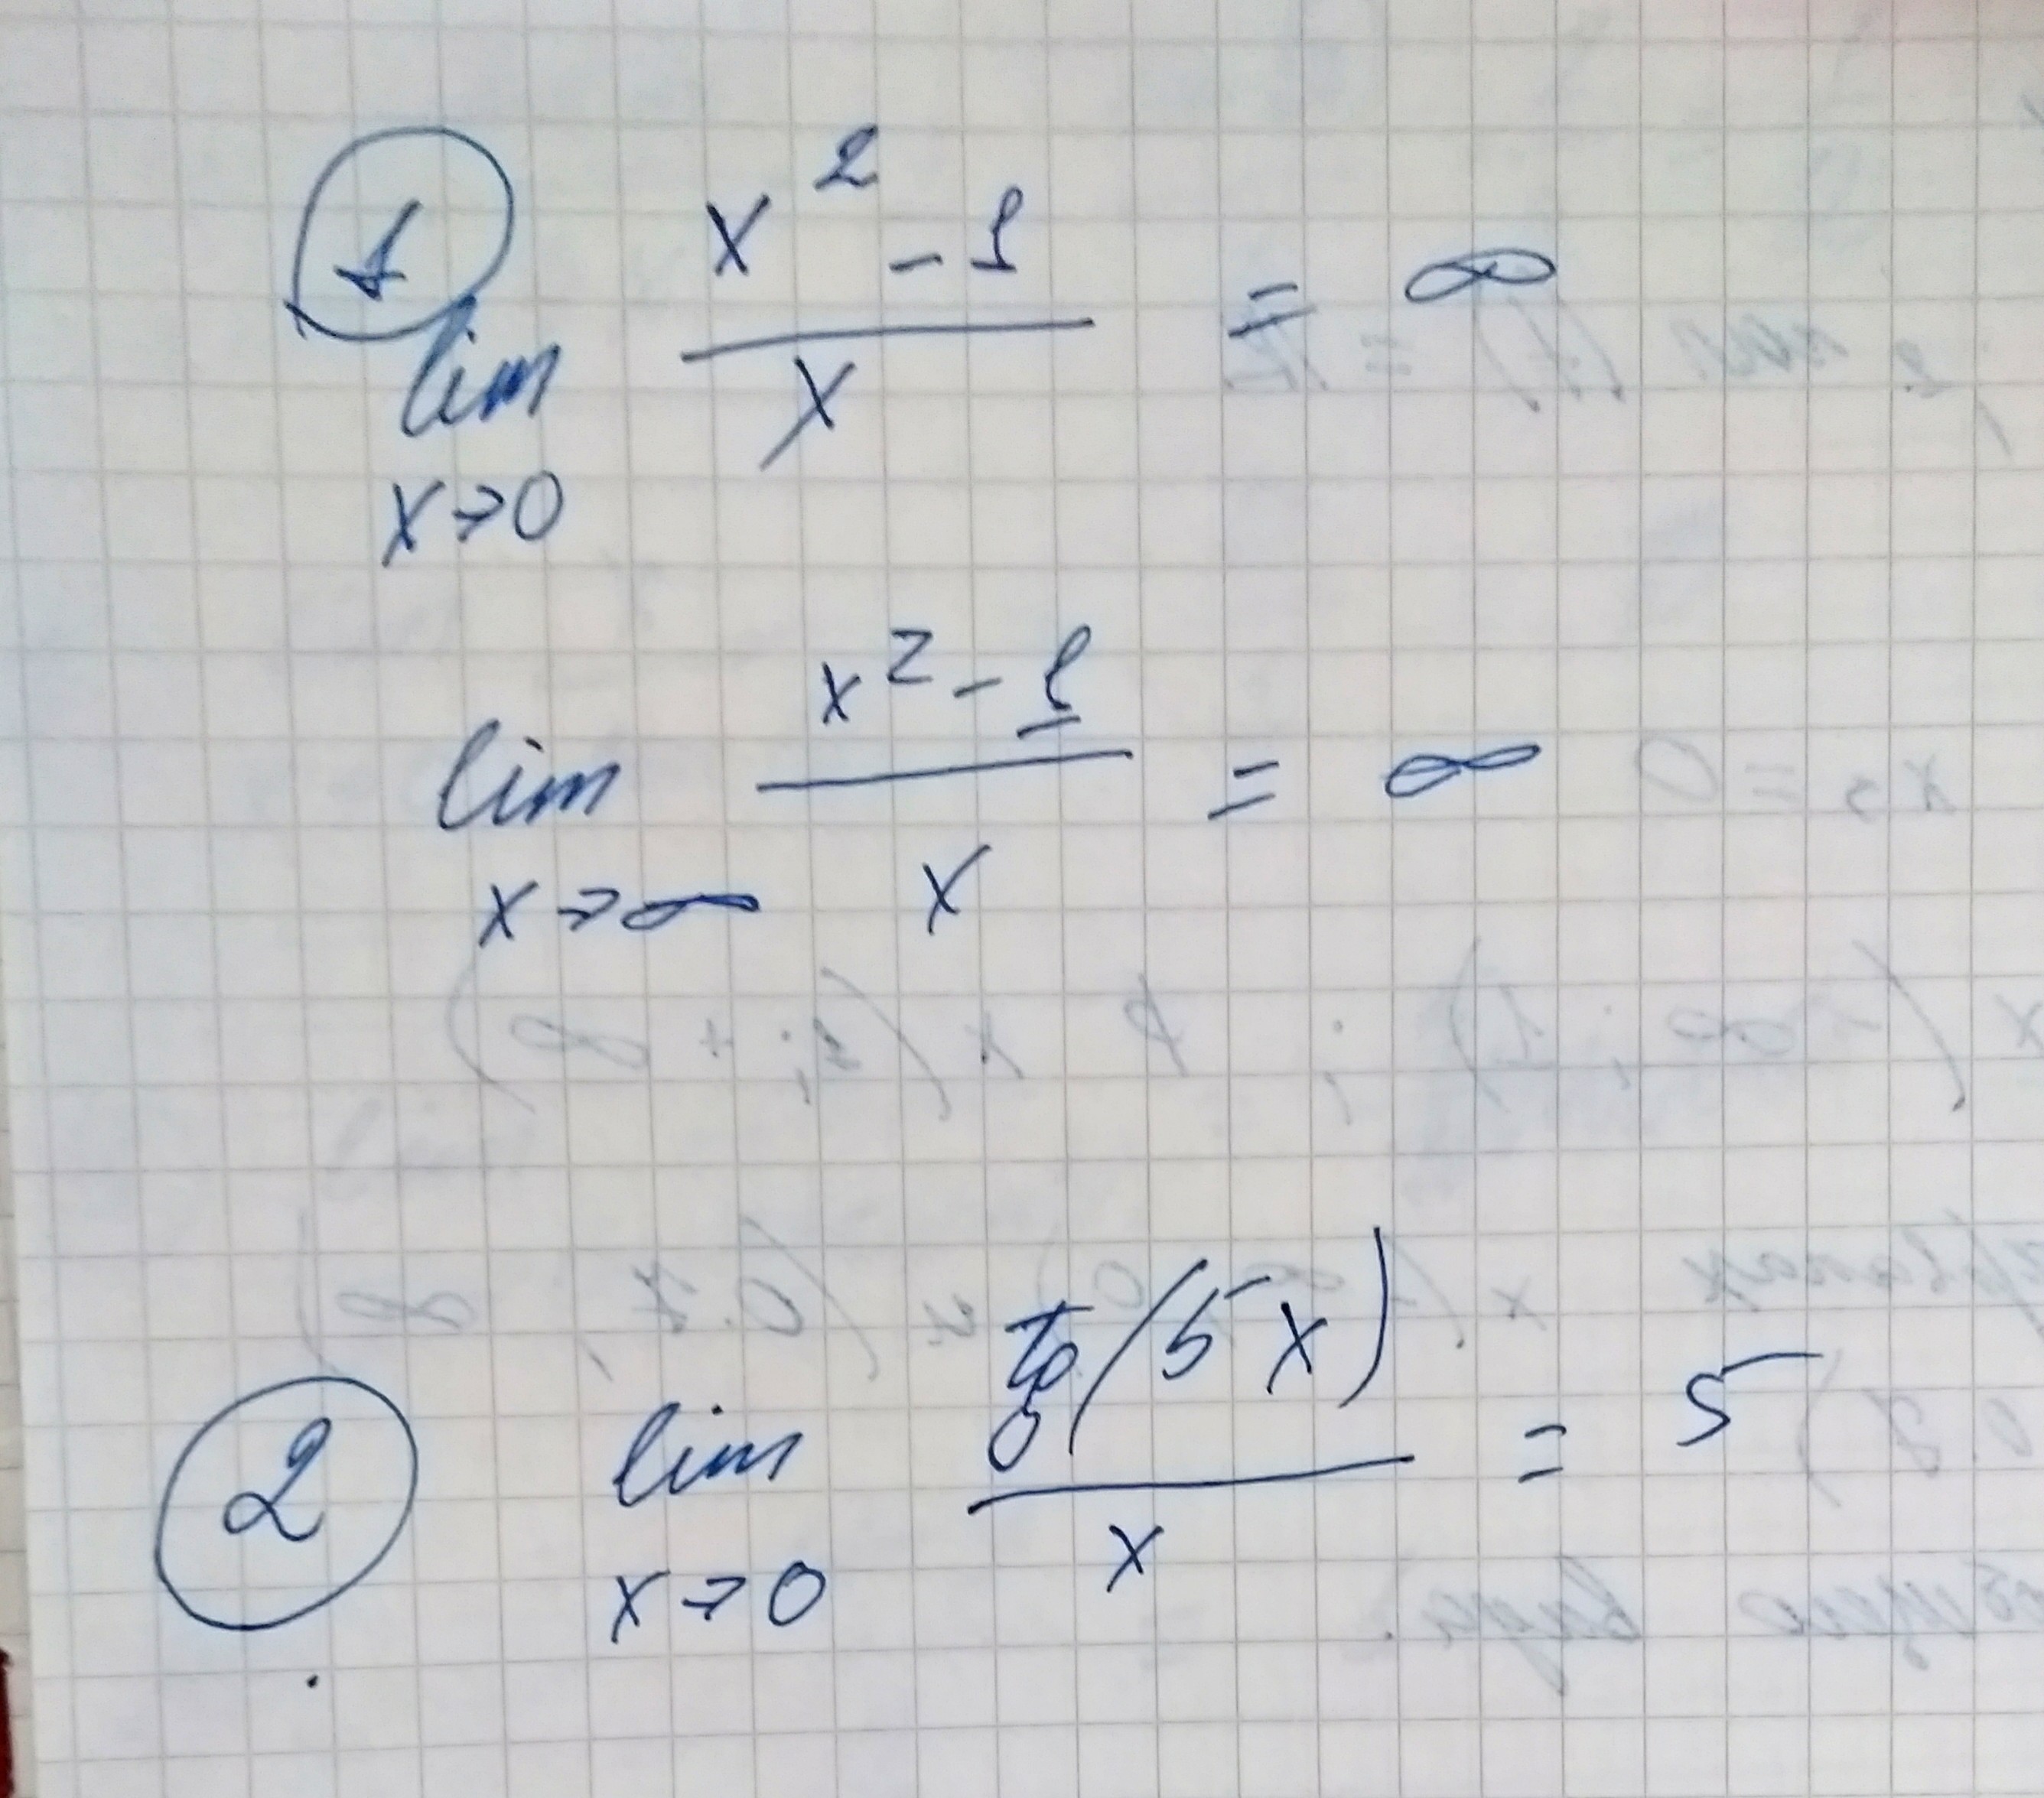 1
lim x→0 (x² - 1) / x = ∞
lim x→∞ (x² - 1) / x = ∞
2 lim x→0 tg(5x) / x = 5